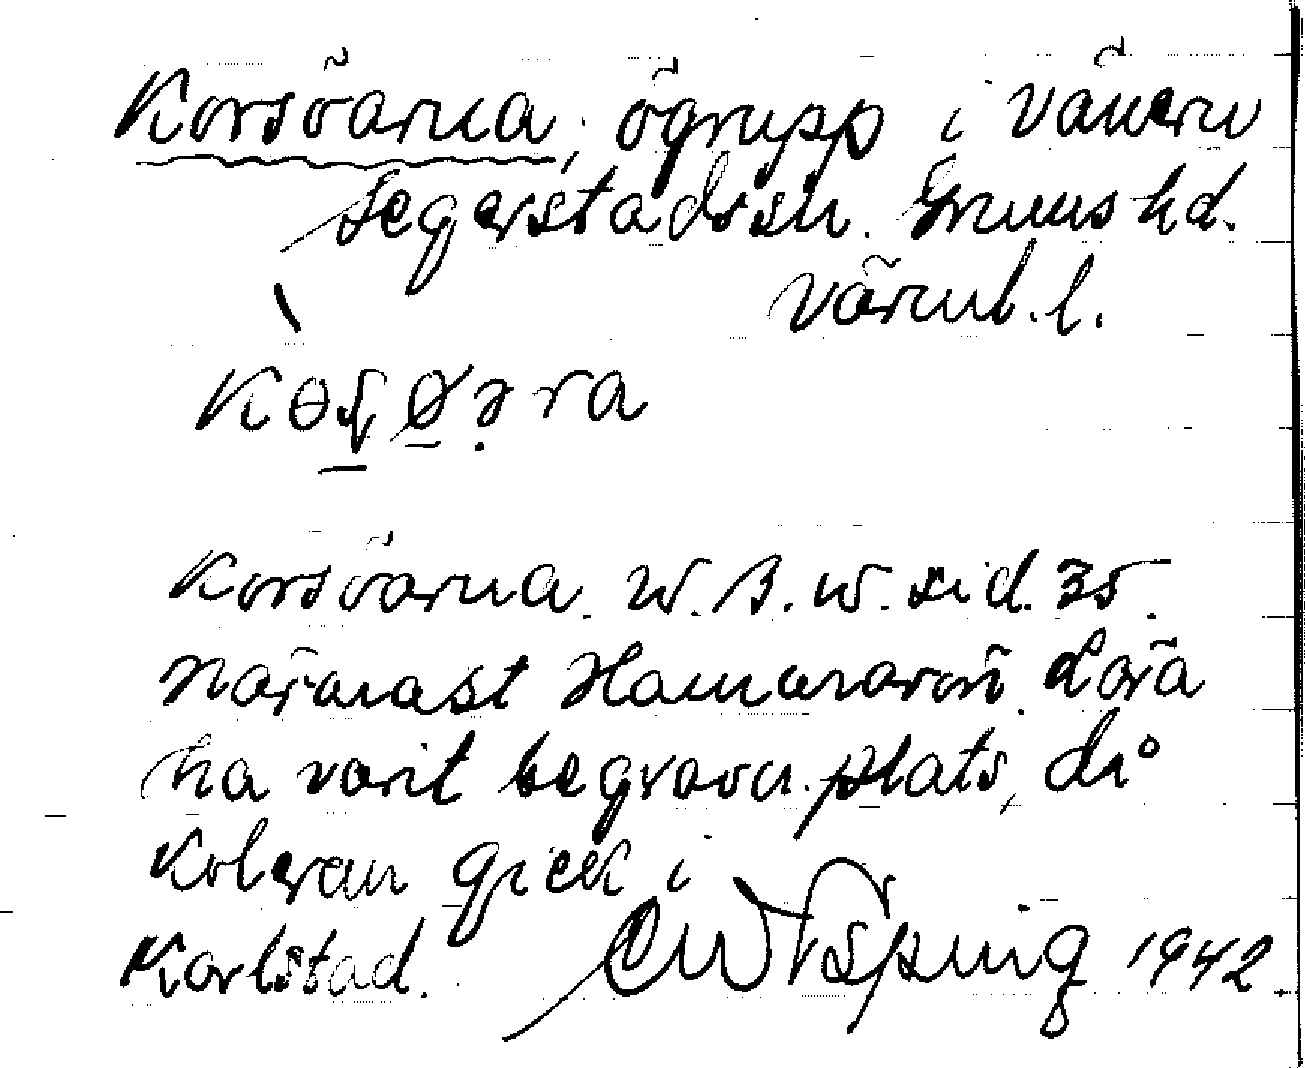 Korsöarna, ögrupp i Vänern
Segerstads sn. Grums hd.
Värml. l.
Korsöarna. W. B. W. sid. 35.
Närmast Hammarön. Lära
ha varit begravn. plats, då
Koleran gick i
Karlstad. 1942.